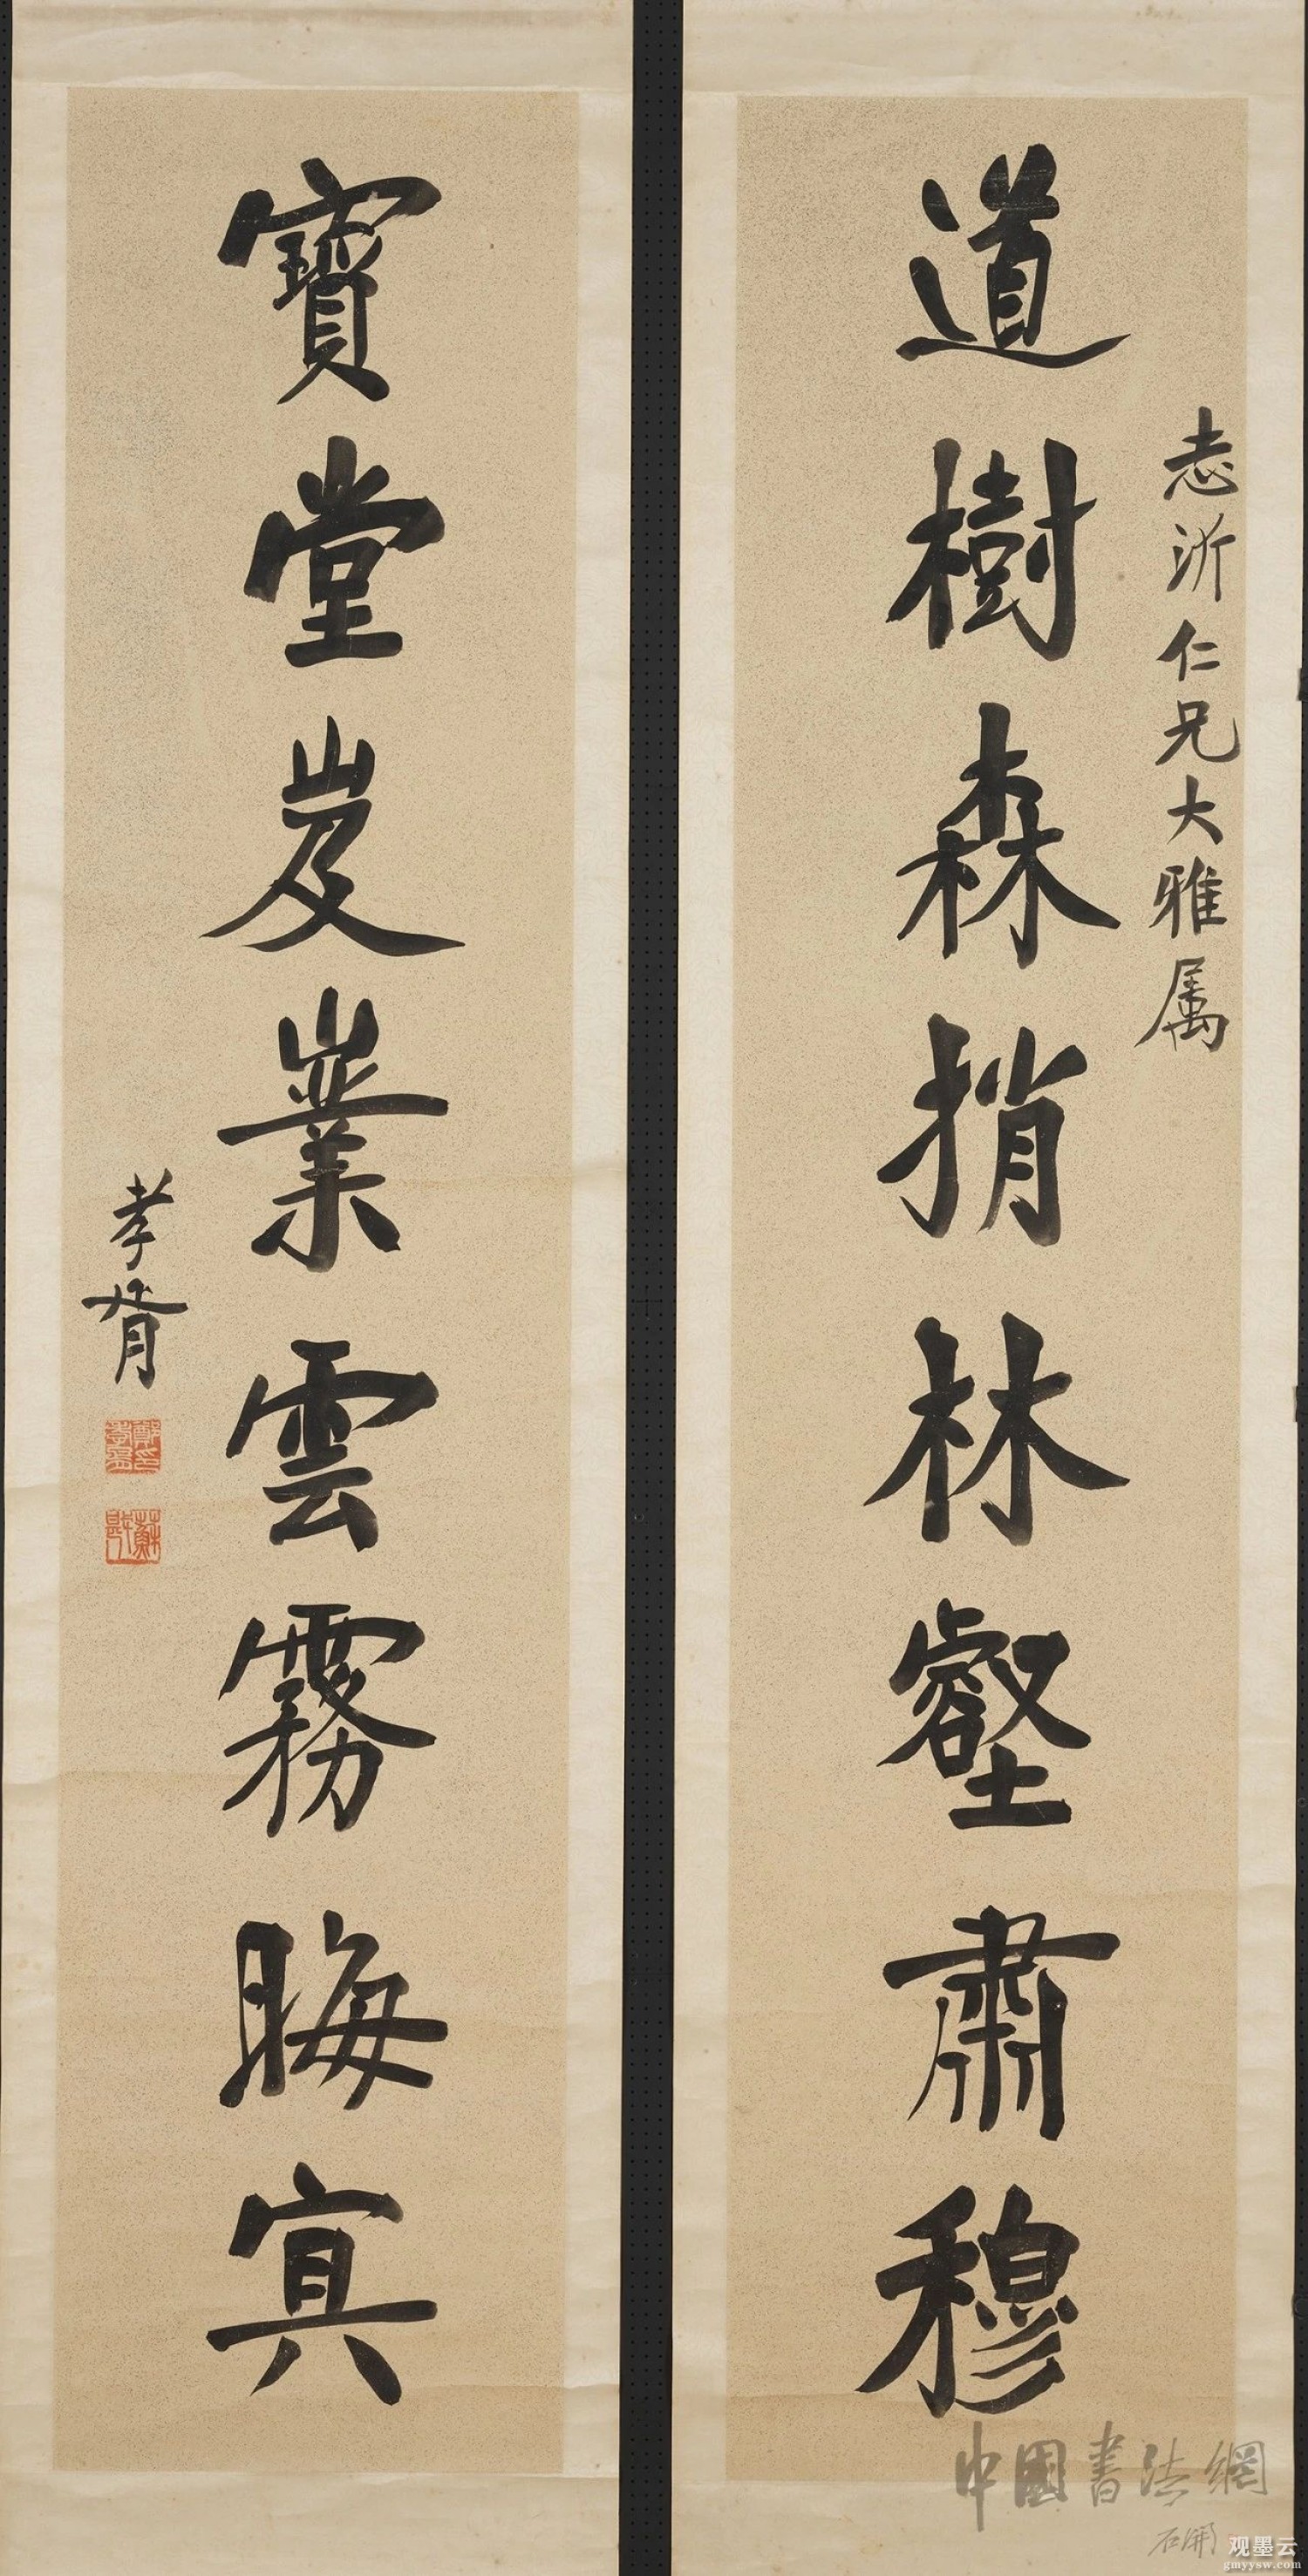 道樹森捎林壑肅穆
志沂仁兄大雅属
寶堂岌嶪雲霧晦冥
孝胥
鄭印孝胥
蘇戡
中國書法網
石開
观墨云
gmyysw.com